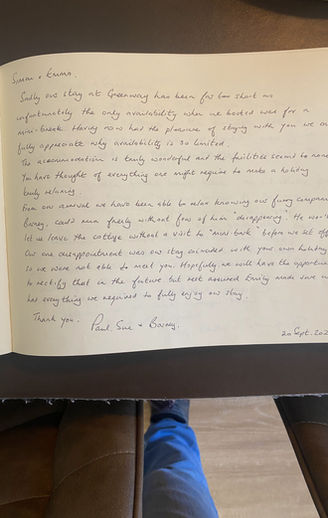 Simon & Emma,
Sadly our stay at Greenway has been far too short as
unfortunately the only availability when we booked was for a
mini-break. Having now had the pleasure of staying with you we can
fully appreciate why availability is so limited.
The accommodation is truly wonderful and the facilities second to none.
You have thought of everything one might require to make a holiday
truly relaxing.
From our arrival we have been able to relax knowing our furry companion
Barney, could run freely without fear of him 'disappearing'. He won't
let us leave the cottage without a visit to before we set off
Our one disappointment was our stay coincided with your own holiday
so we were not able to meet you. Hopefully we will have the
to rectify that in the future but rest assured Emily made sure we
has everything we required to fully enjoy our stay.
Thank you. Paul Sue & Barney.
20 Sept. 202